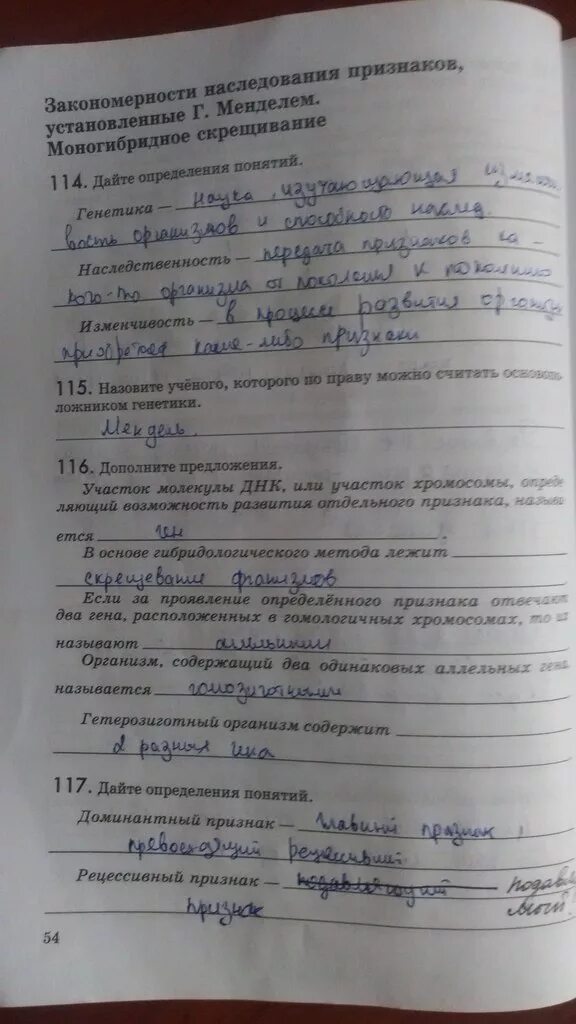 Закономерности наследования признаков,
установленные Г. Менделем.
Моногибридное скрещивание
114. Дайте определения понятий.
Генетика — наука, изучающающая измен
вость организмов и способность наслед.
Наследственность — передача признаков ка-
кого-то организма от поколения к поколению
Изменчивость — в процессе развития организм
приобретает какие-либо признаки
115. Назовите учёного, которого по праву можно считать осново
ложником генетики.
Мендель.
116. Дополните предложения.
Участок молекулы ДНК, или участок хромосомы, опреде
ляющий возможность развития отдельного признака, называ
ется ген.
В основе гибридологического метода лежит
скрещевание организмов
Если за проявление определённого признака отвечают
два гена, расположенных в гомологичных хромосомах, то их
называют аллельними
Организм, содержащий два одинаковых аллельных гена
называется гомозиготными
Гетерозиготный организм содержит
2 разных гена
117. Дайте определения понятий.
Доминантный признак — главний признак,
превосходящий рецессивний
Рецессивный признак — подавляющий подавля
емый
признак
54